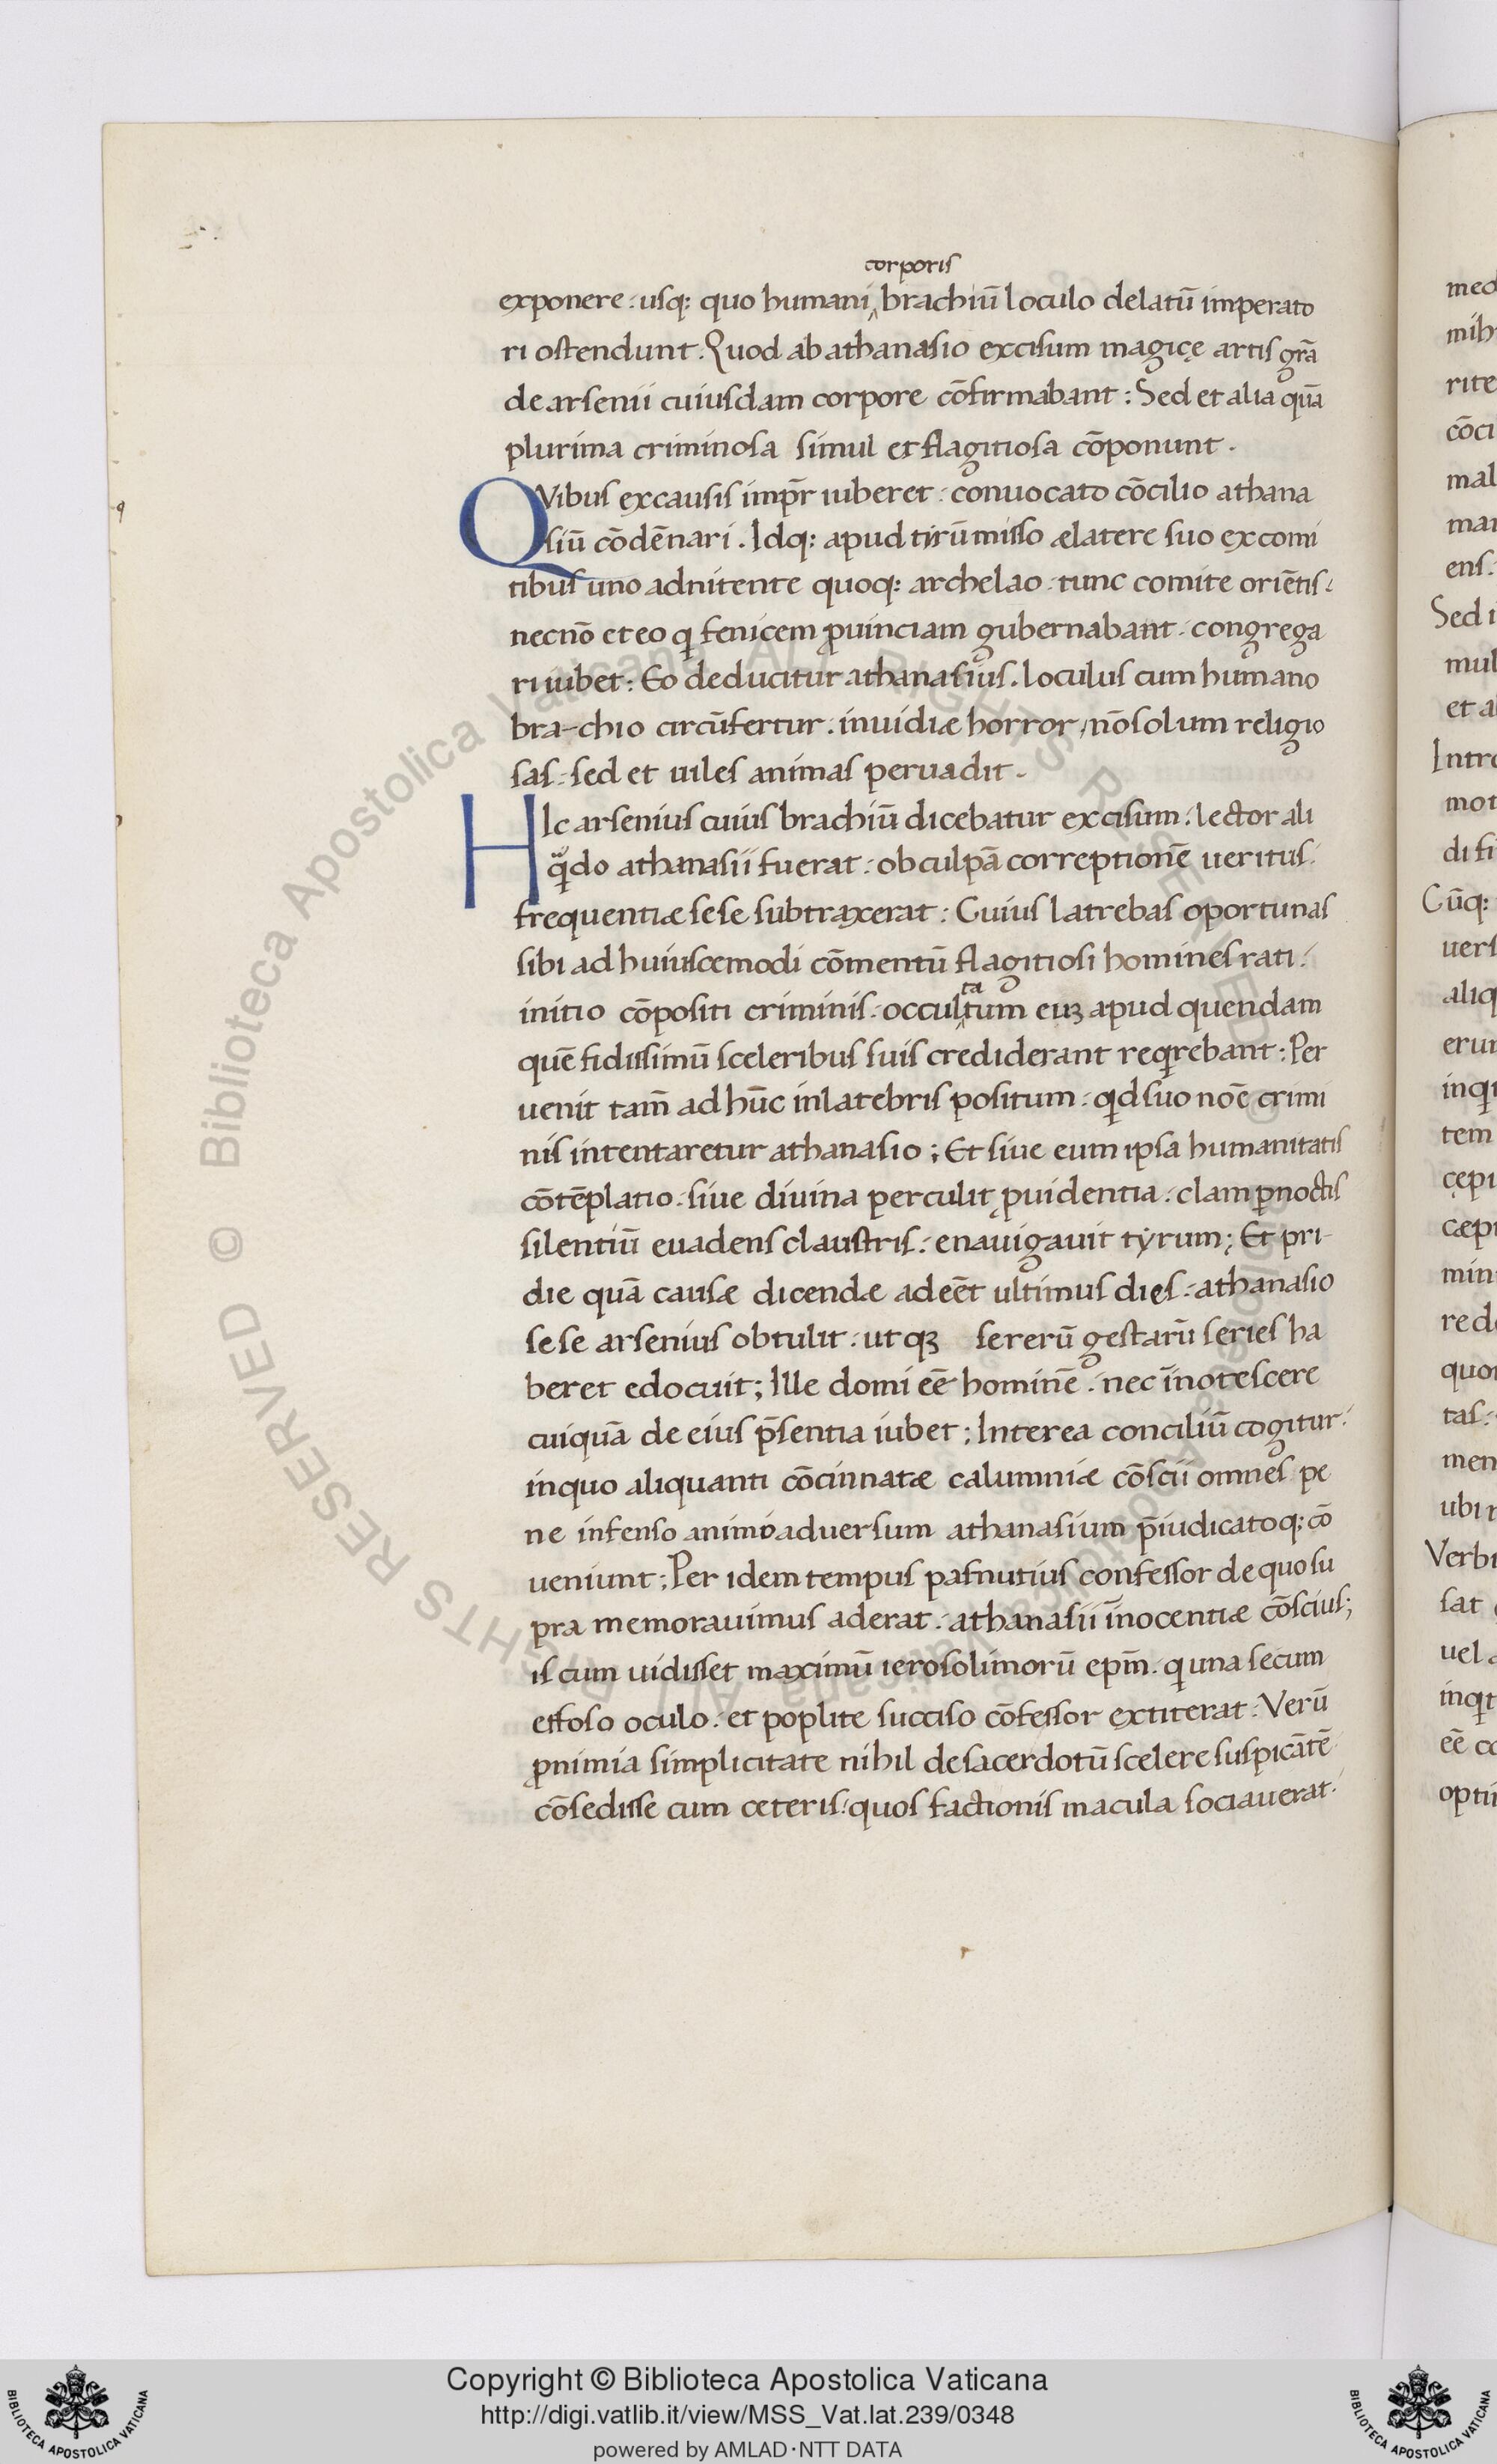 corporis
exponere . usq: quo humani brachiū loculo delatū imperato
ri ostendunt . Quod ab athanasio excisum magicę artis grā
de arsenii cuiusdam corpore cōfirmabant : Sed et alia quā
plurima criminosa simul et flagitiosa cōponunt .
QVibus ex causis impr̄ iuberet . conuocato cōcilio athana
siū cōdēnari . Idq: apud tirū misso ælatere suo ex comi
tibus uno adnitente quoq: archelao . tunc comite oriētis .
necnō et eo q fenicem ꝓuinciam gubernabant . congrega
ri iubet : Eo deducitur athanasius . loculus cum humano
bra-chio circūfertur . inuidiæ horror , nō solum religio
sas . sed et uiles animas peruadit .
HIc arsenius cuius brachiū dicebatur excisum . lector ali
qūdo athanasii fuerat . ob culpā correptionē ueritus .
frequentiæ sese subtraxerat : Cuius latrebas oportunas
sibi ad huiuscemodi cōmentū flagitiosi homines rati .
ta
initio cōpositi criminis . occultum euꝫ apud quendam
quē fidissimū sceleribus suis crediderant reqrebant : Per
uenit tam̄ ad hūc in latebris positum . qd suo noē crimi
nis intentaretur athanasio ; Et siue eum ipsa humanitatis
cōtēplatio . siue diuina perculit ꝓuidentia . clam ꝑ noctis
silentiū euadens claustris . enauigauit tyrum ; Et pri-
die quā causæ dicendæ adeēt ultimus dies . athanasio
sese arsenius obtulit . ut qꝫ se rerū gestarū series ha
beret edocuit ; Ille domi eē hominē . nec īnotescere
cuiquā de eius p̄sentia iubet ; Interea conciliū cogitur .
in quo aliquanti cōcinnatæ calumniæ cōscii omnes pe
ne infenso animo aduersum athanasium p̄iudicatoq: cō
ueniunt ; Per idem tempus pafnutius confessor de quo su
pra memorauimus aderat . athanasii īnocentiæ cōscius ;
is cum uidisset maximū ierosolimorū ep̄m . q una secum
effoso oculo . et poplite succiso cōfessor extiterat . Verū
ꝓ nimia simplicitate nihil de sacerdotū scelere suspicātē
cōsedisse cum ceteris . quos factionis macula sociauerat .
med
mih
rite
cōci
mal
mar
ens .
Sed i
mul
et a
Intro
mot
di fi
Cūq:
uers
aliq
erun
inqi
tem
cępi
cæpi
min
rede
quor
tas .
men
ubi r
Verbi
sat
uel a
inqt
eē co
opti
© Biblioteca Apostolica Vaticana ALL RIGHTS RESERVED
Copyright © Biblioteca Apostolica Vaticana
http://digi.vatlib.it/view/MSS_Vat.lat.239/0348
powered by AMLAD·NTT DATA
BIBLIOTECA APOSTOLICA VATICANA
BIBLIOTECA APOSTOLICA VATICANA